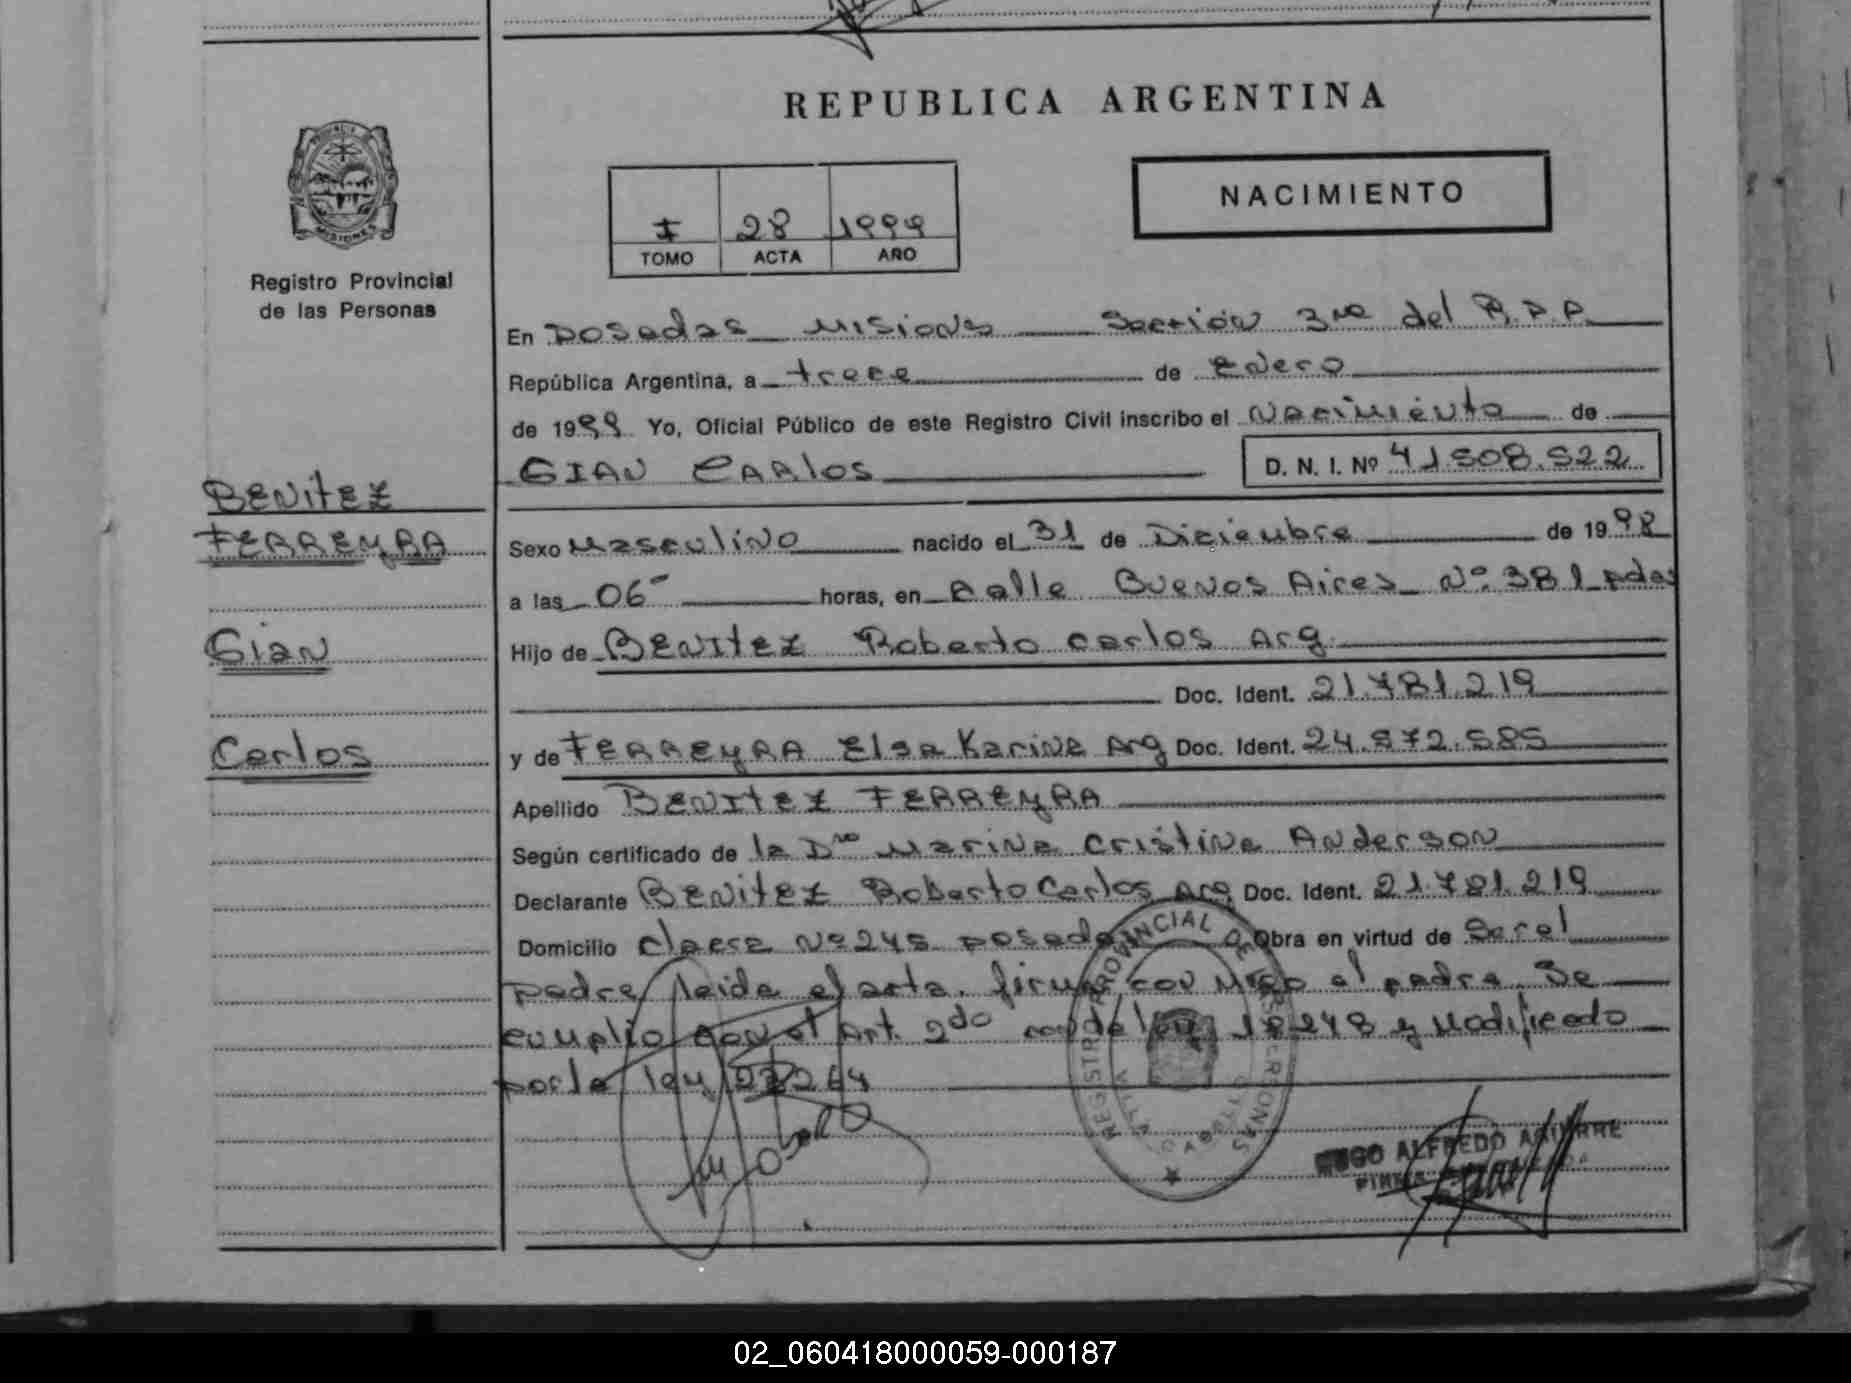 REPUBLICA ARGENTINA
NACIMIENTO
I 28 1999
TOMO ACTA AÑO
Registro Provincial
de las Personas
En Posadas Misiones Sección 3ra del R.P.P.
República Argentina, a trece de Enero
de 1999 Yo, Oficial Público de este Registro Civil inscribo el Nacimiento de
GIAN CARLOS D. N. I. Nº 41.508.522
BENITEZ
FERREYRA
Gian
Carlos
Sexo Masculino nacido el 31 de Diciembre de 1998
a las 06 horas, en Calle Buenos Aires Nº 381 pdas
Hijo de BENITEZ Roberto Carlos Arg.
Doc. Ident. 21.781.219
y de FERREYRA Elsa Karina Arg Doc. Ident. 24.572.585
Apellido BENITEZ FERREYRA
Según certificado de la Dra Marina Cristina Anderson
Declarante BENITEZ Roberto Carlos Arg Doc. Ident. 21.781.219
Domicilio Nº 245 posadas Obra en virtud de Ser el
padre leida el acta. firma con migo el padre. Se
cumplio con el Art. 2do de ley 18248 y modificado
por la ley 23264
REGISTRO PROVINCIAL DE PERSONAS
HUGO ALFREDO AGUIRRE
02_060418000059-000187